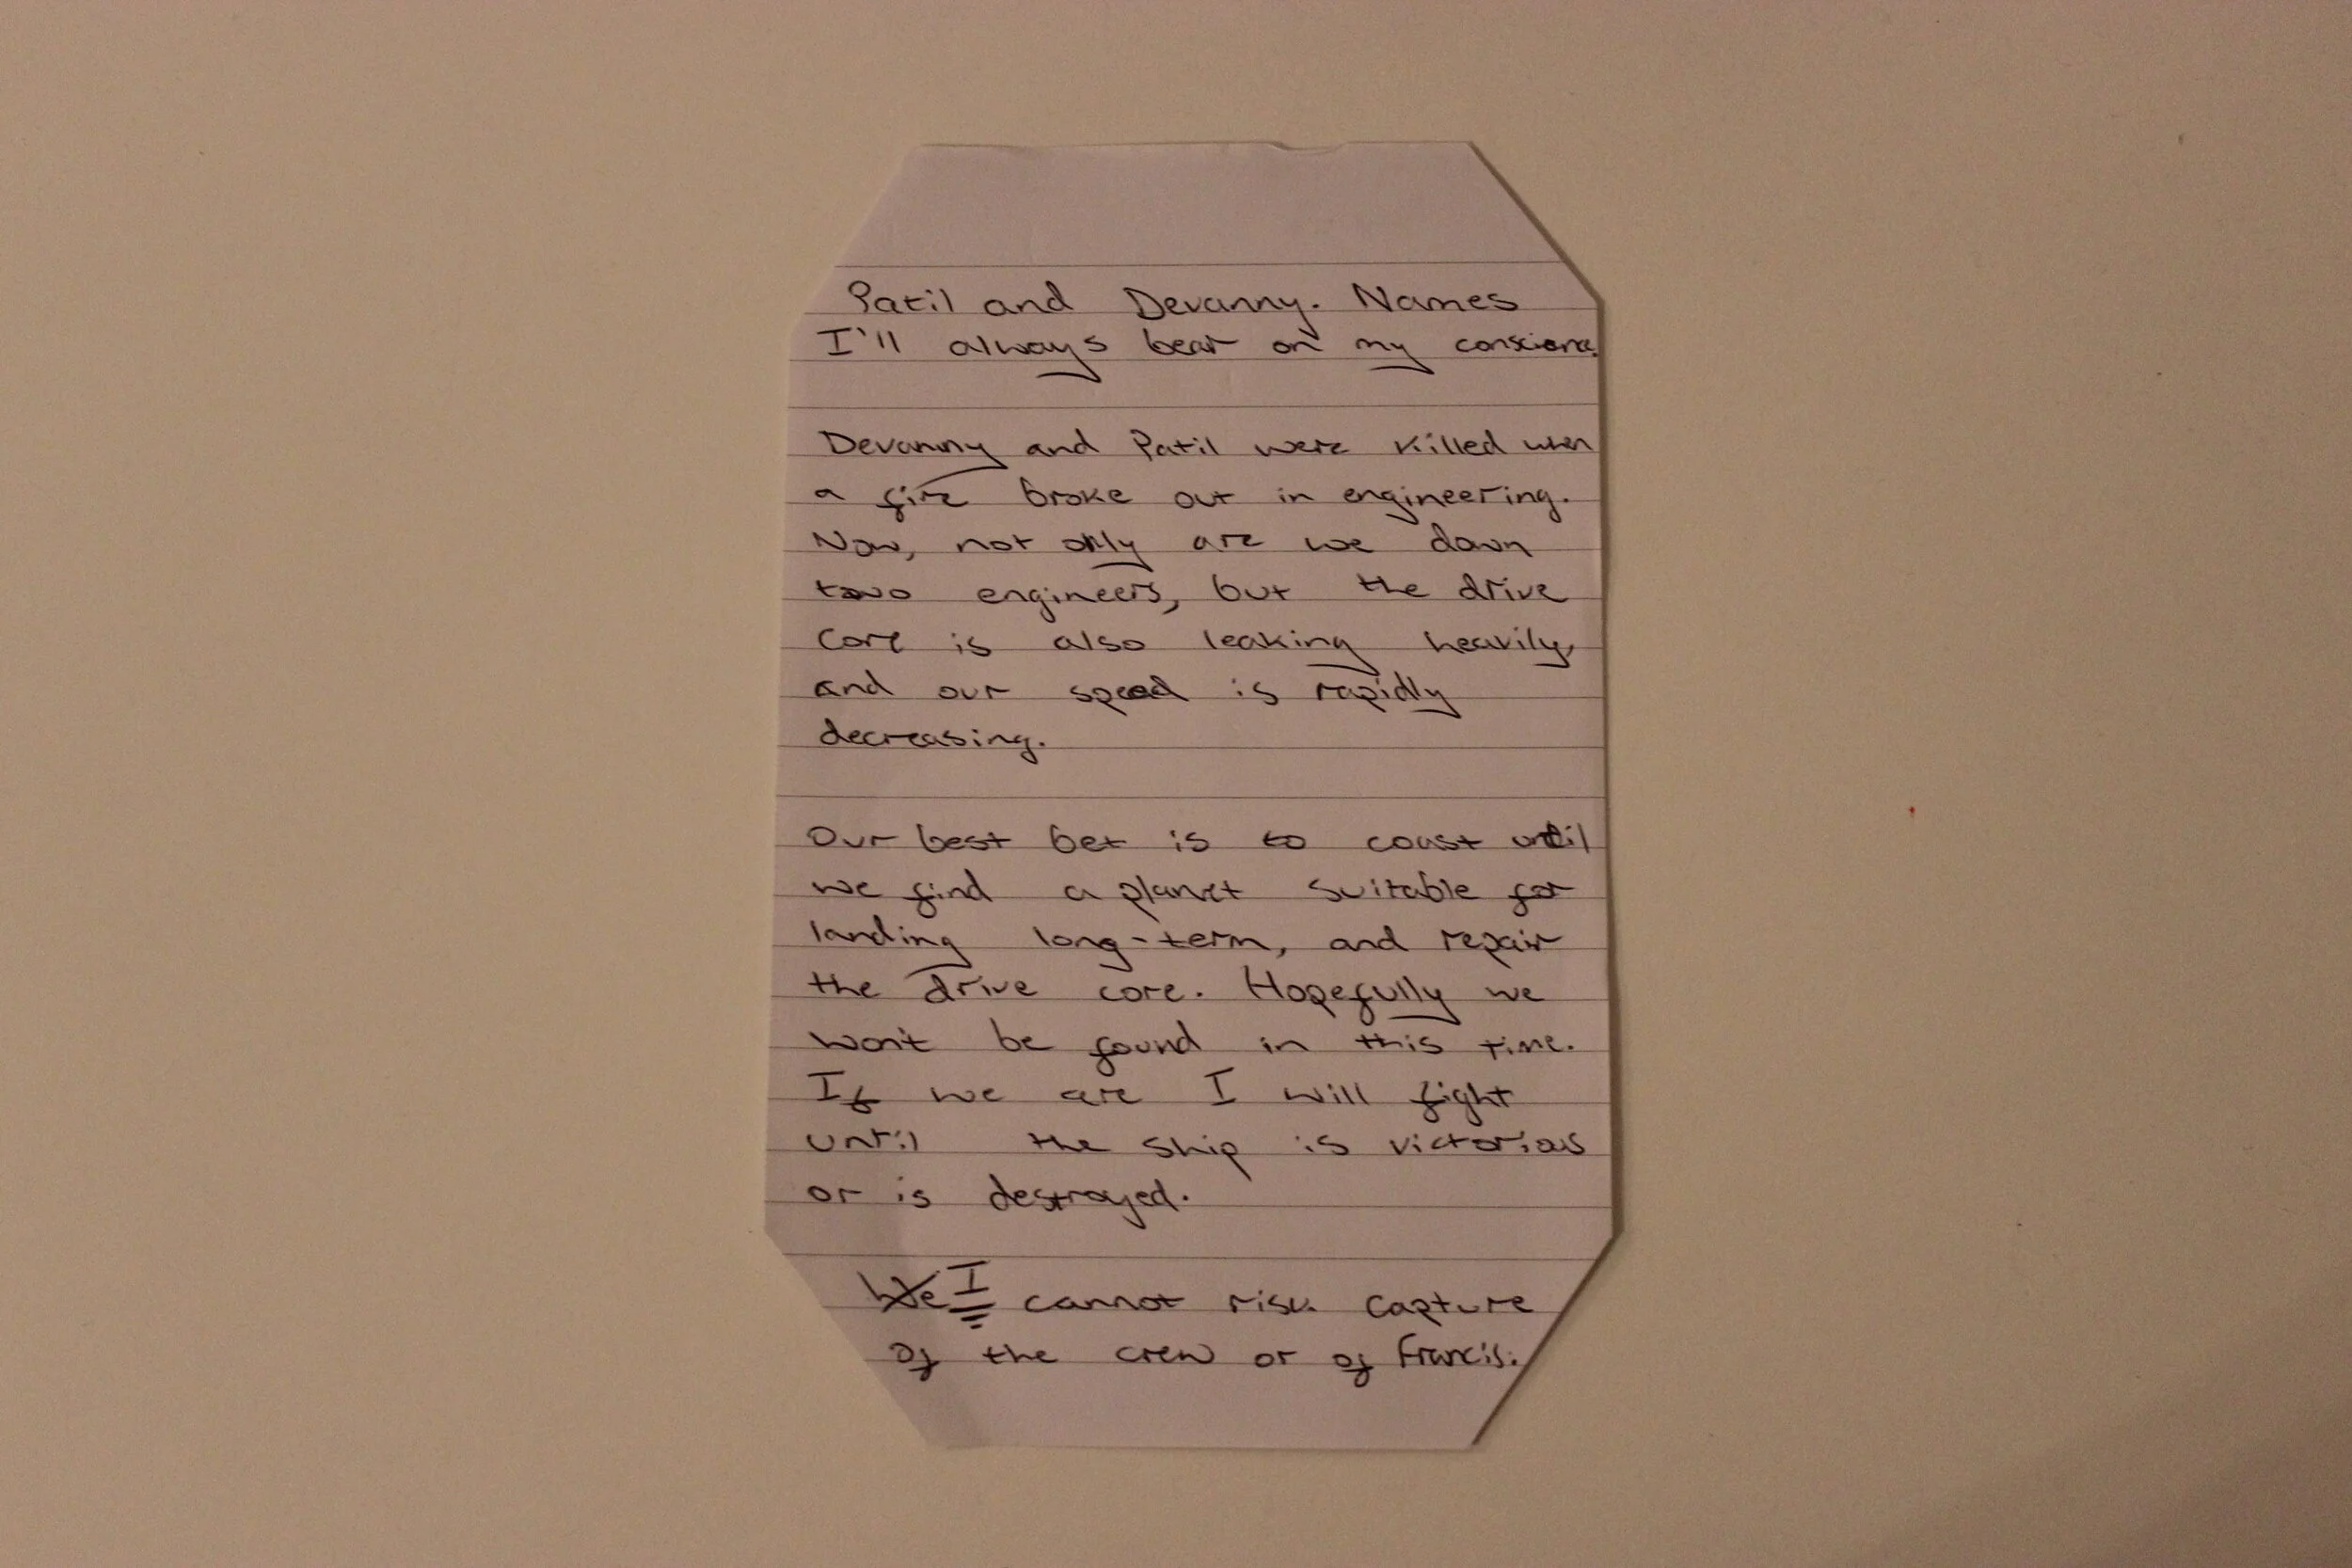 Patil and Devanny. Names
I'll always bear on my conscience.
Devanny and Patil were killed when
a fire broke out in engineering.
Now, not only are we down
two engineers, but the drive
core is also leaking heavily,
and our speed is rapidly
decreasing.
Our best bet is to coast until
we find a planet suitable for
landing long-term, and repair
the drive core. Hopefully we
won't be found in this time.
If we are I will fight
until the ship is victorious
or is destroyed.
We I cannot risk capture
of the crew or of Francis.